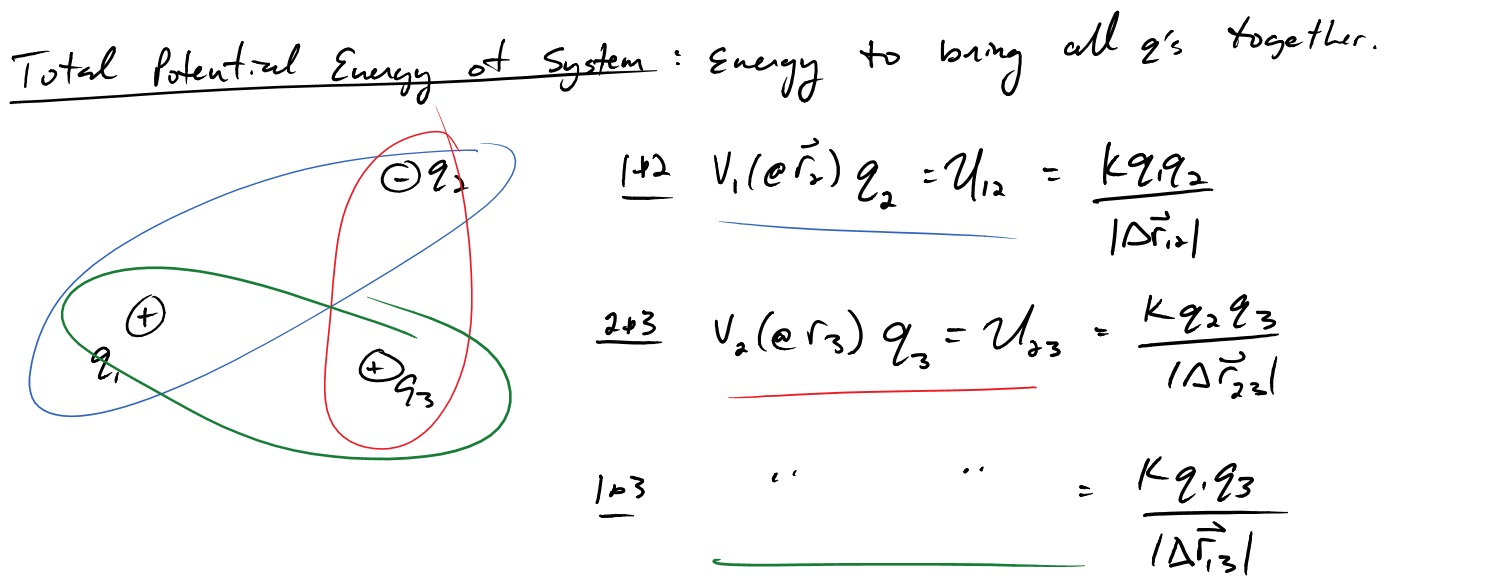 Total Potential Energy of System : Energy to bring all q's together.
⊖ q₂
⊕
q₁
⊕ q₃
1+2 V₁(@ r⃗₂) q₂ = U₁₂ = kq₁q₂ / |Δr⃗₁₂|
2+3 V₂(@ r₃) q₃ = U₂₃ = Kq₂q₃ / |Δr⃗₂₃|
1+3 " " = Kq₁q₃ / |Δr⃗₁₃|